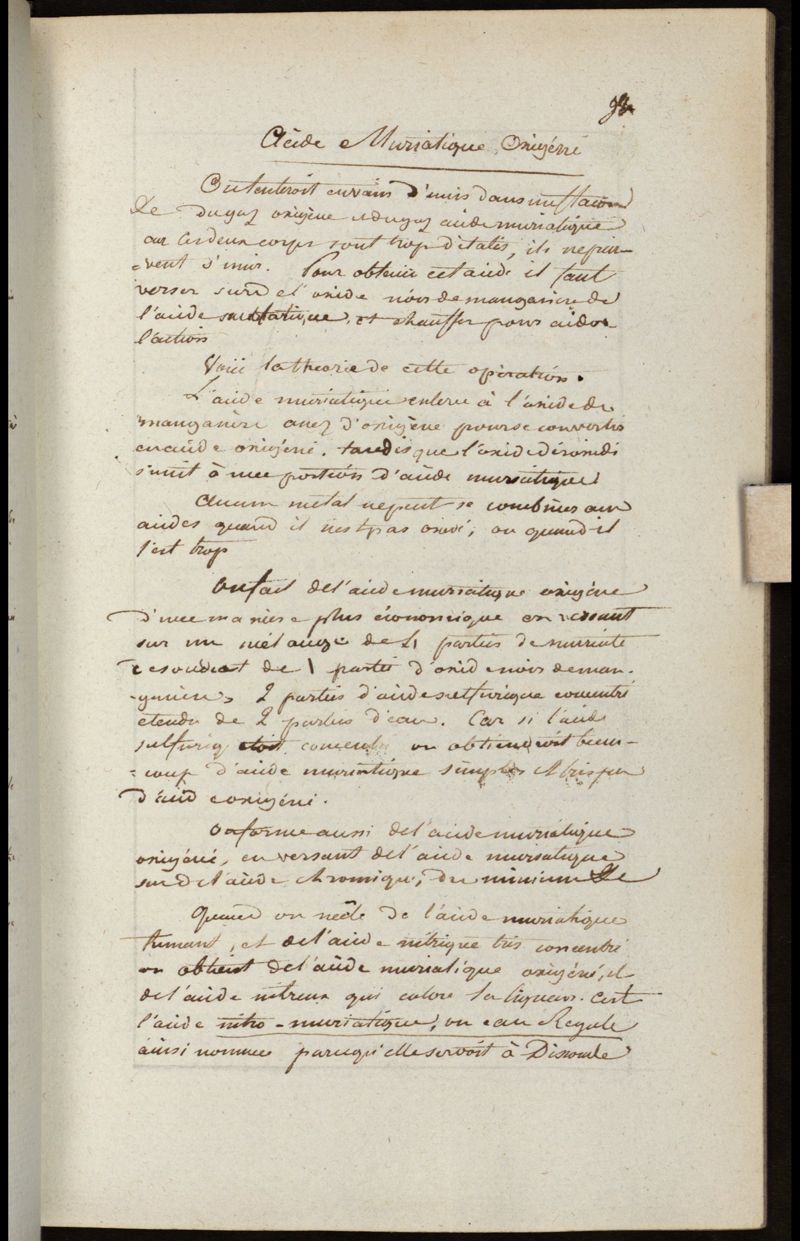 Acide Muriatique Oxigéné
On tenteroit envain d'unir dans un flacon
de du gaz oxigène et du gaz acide muriatique
car ces deux corps sont trop dilatés, ils ne peu-
-vent s'unir. Pour obtenir cet acide il faut
verser sur de l'oxide noir de manganèse de
l'acide muriatique, et chauffer pour aider
l'action
Voici la theorie de cette opération.
L'acide muriatique enleve à l'oxide de
manganèse assez d'oxigène pour se convertir
en acide oxigéné. tandis que l'oxide désoxidé
s'unit à une portion d'acide muriatique
Aucun metal ne peut se combiner aux
acides quand il n'est pas oxidé, ou quand il
l'est trop
On fait de l'acide muriatique oxigéné
d'une maniere plus économique en versant
sur un mélange de 4 parties de muriate
de soude et de 1 partie d'oxide noir de man-
-ganèse, 2 parties d'acide sulfurique concentré
étendu de 2 parties d'eau. Car si l'acide
sulfuriq étoit concentré on obtiendroit beau-
-coup d'acide muriatique simple et très peu
d'acide oxigéné.
On forme aussi de l'acide muriatique
oxigéné, en versant de l'acide muriatique
sur de l'acide chromique, du minium &c
Quand on mêle de l'acide muriatique
fumant, et de l'acide nitrique très concentré
on obtient de l'acide muriatique oxigéné, et
de l'acide nitreux qui colore la liqueur. C'est
l'acide nitro-muriatique, ou eau Regale
ainsi nommée parcequ'elle servoit à Dissoudre